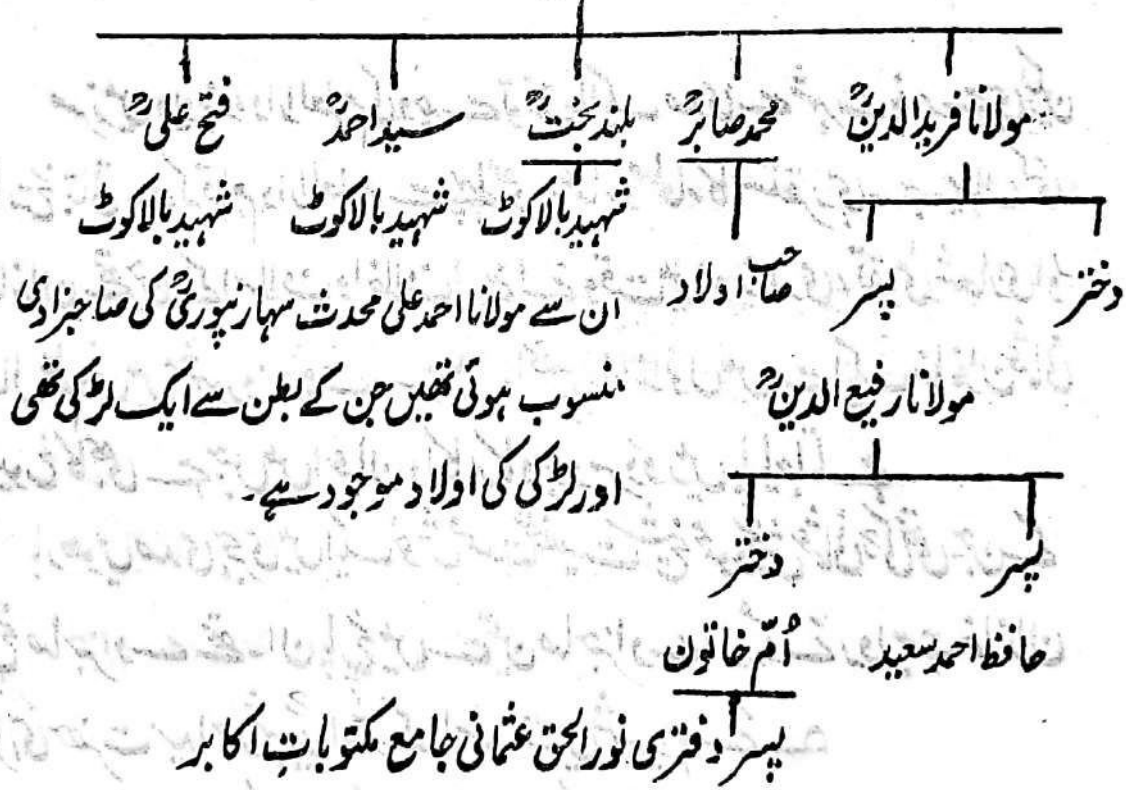 مولانا فرید الدینؒ محمد صابرؒ بلند بختؒ سید احمدؒ فتح علیؒ
شہید بالاکوٹ شہید بالاکوٹ شہید بالاکوٹ
دختر پسر صاحب اولاد
ان سے مولانا احمد علی محدث سہارنپوریؒ کی صاحبزادی
مولانا رفیع الدینؒ
منسوب ہوئی تھیں جن کے بطن سے ایک لڑکی تھی
اور لڑکی کی اولاد موجود ہے۔
پسر دختر
حافظ احمد سعید اُمّ خاتون
پسر دفتری نور الحق عثمانی جامع مکتوباتِ اکابر